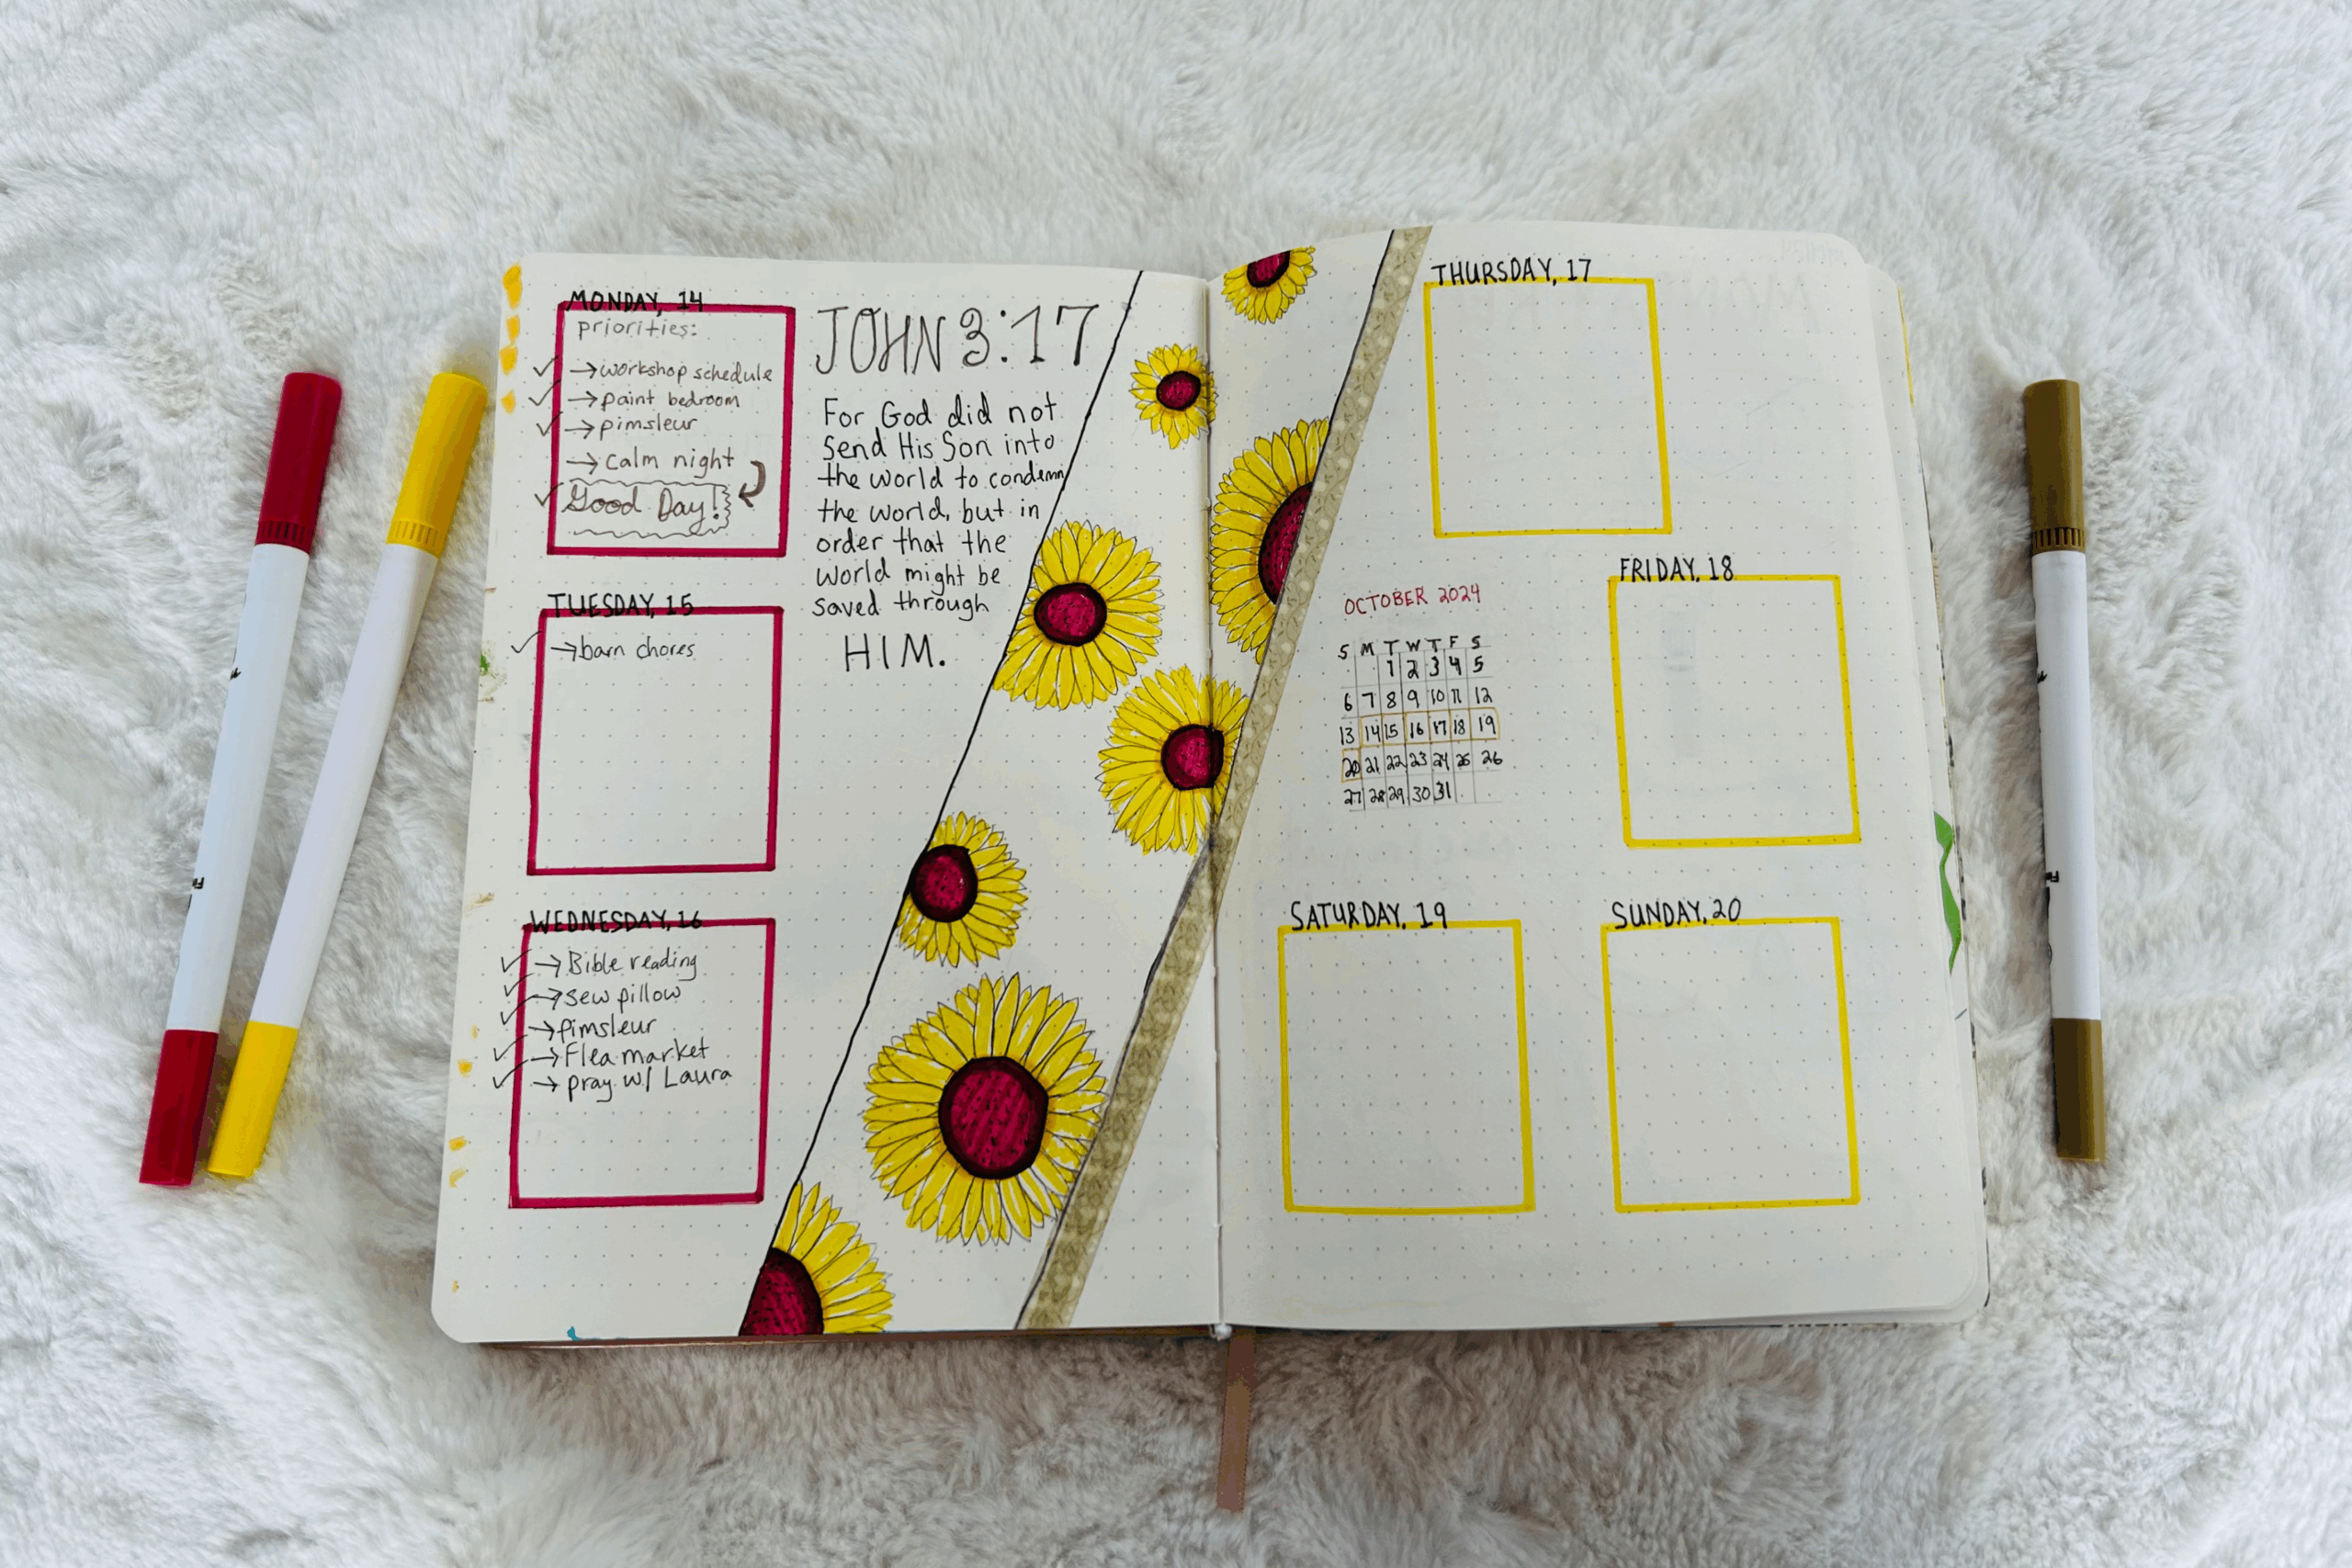 MONDAY, 14
priorities:
✓ →workshop schedule
✓ →paint bedroom
✓ →pimsleur
→ calm night
✓ Good Day!
TUESDAY, 15
✓ →barn chores
WEDNESDAY, 16
✓ →Bible reading
✓ →sew pillow
✓ →pimsleur
✓ →Flea market
✓ → pray w/ Laura
JOHN 3:17
For God did not
send His Son into
the world to condemn
the world, but in
order that the
world might be
saved through
HIM.
THURSDAY, 17
OCTOBER 2024
S M T W T F S
1 2 3 4 5
6 7 8 9 10 11 12
13 14 15 16 17 18 19
20 21 22 23 24 25 26
27 28 29 30 31
FRIDAY, 18
SATURDAY, 19
SUNDAY, 20